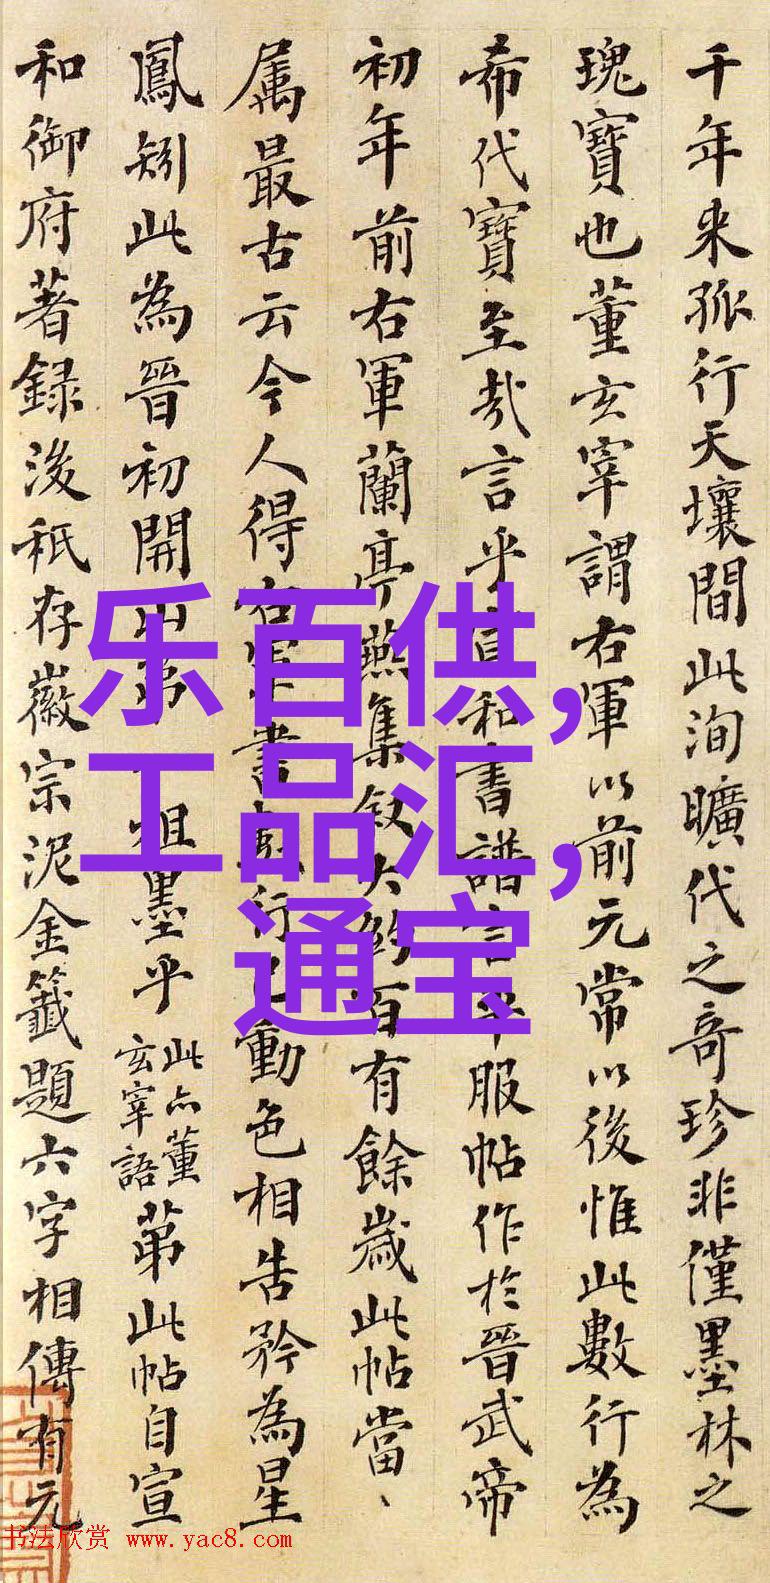 千年来孤行天壤間此洵曠代之奇珍非僅墨林之
瑰寶也董玄宰謂右軍以前元常以後惟此數行為
希代寶至哉言乎宣和書譜言平服帖作於晉武帝
初年前右軍蘭亭燕集叙大約百有餘歲此帖當、
属最古云今人得右軍書數行已動色相告矜為星
鳳矧此為晉初開山弟祖墨乎此亦董玄宰語苐此帖自宣
和御府著録後秖存徽宗泥金籤題六字相傳有元
乐百供，
工品汇，
通宝
书法欣赏 www.yac8.com